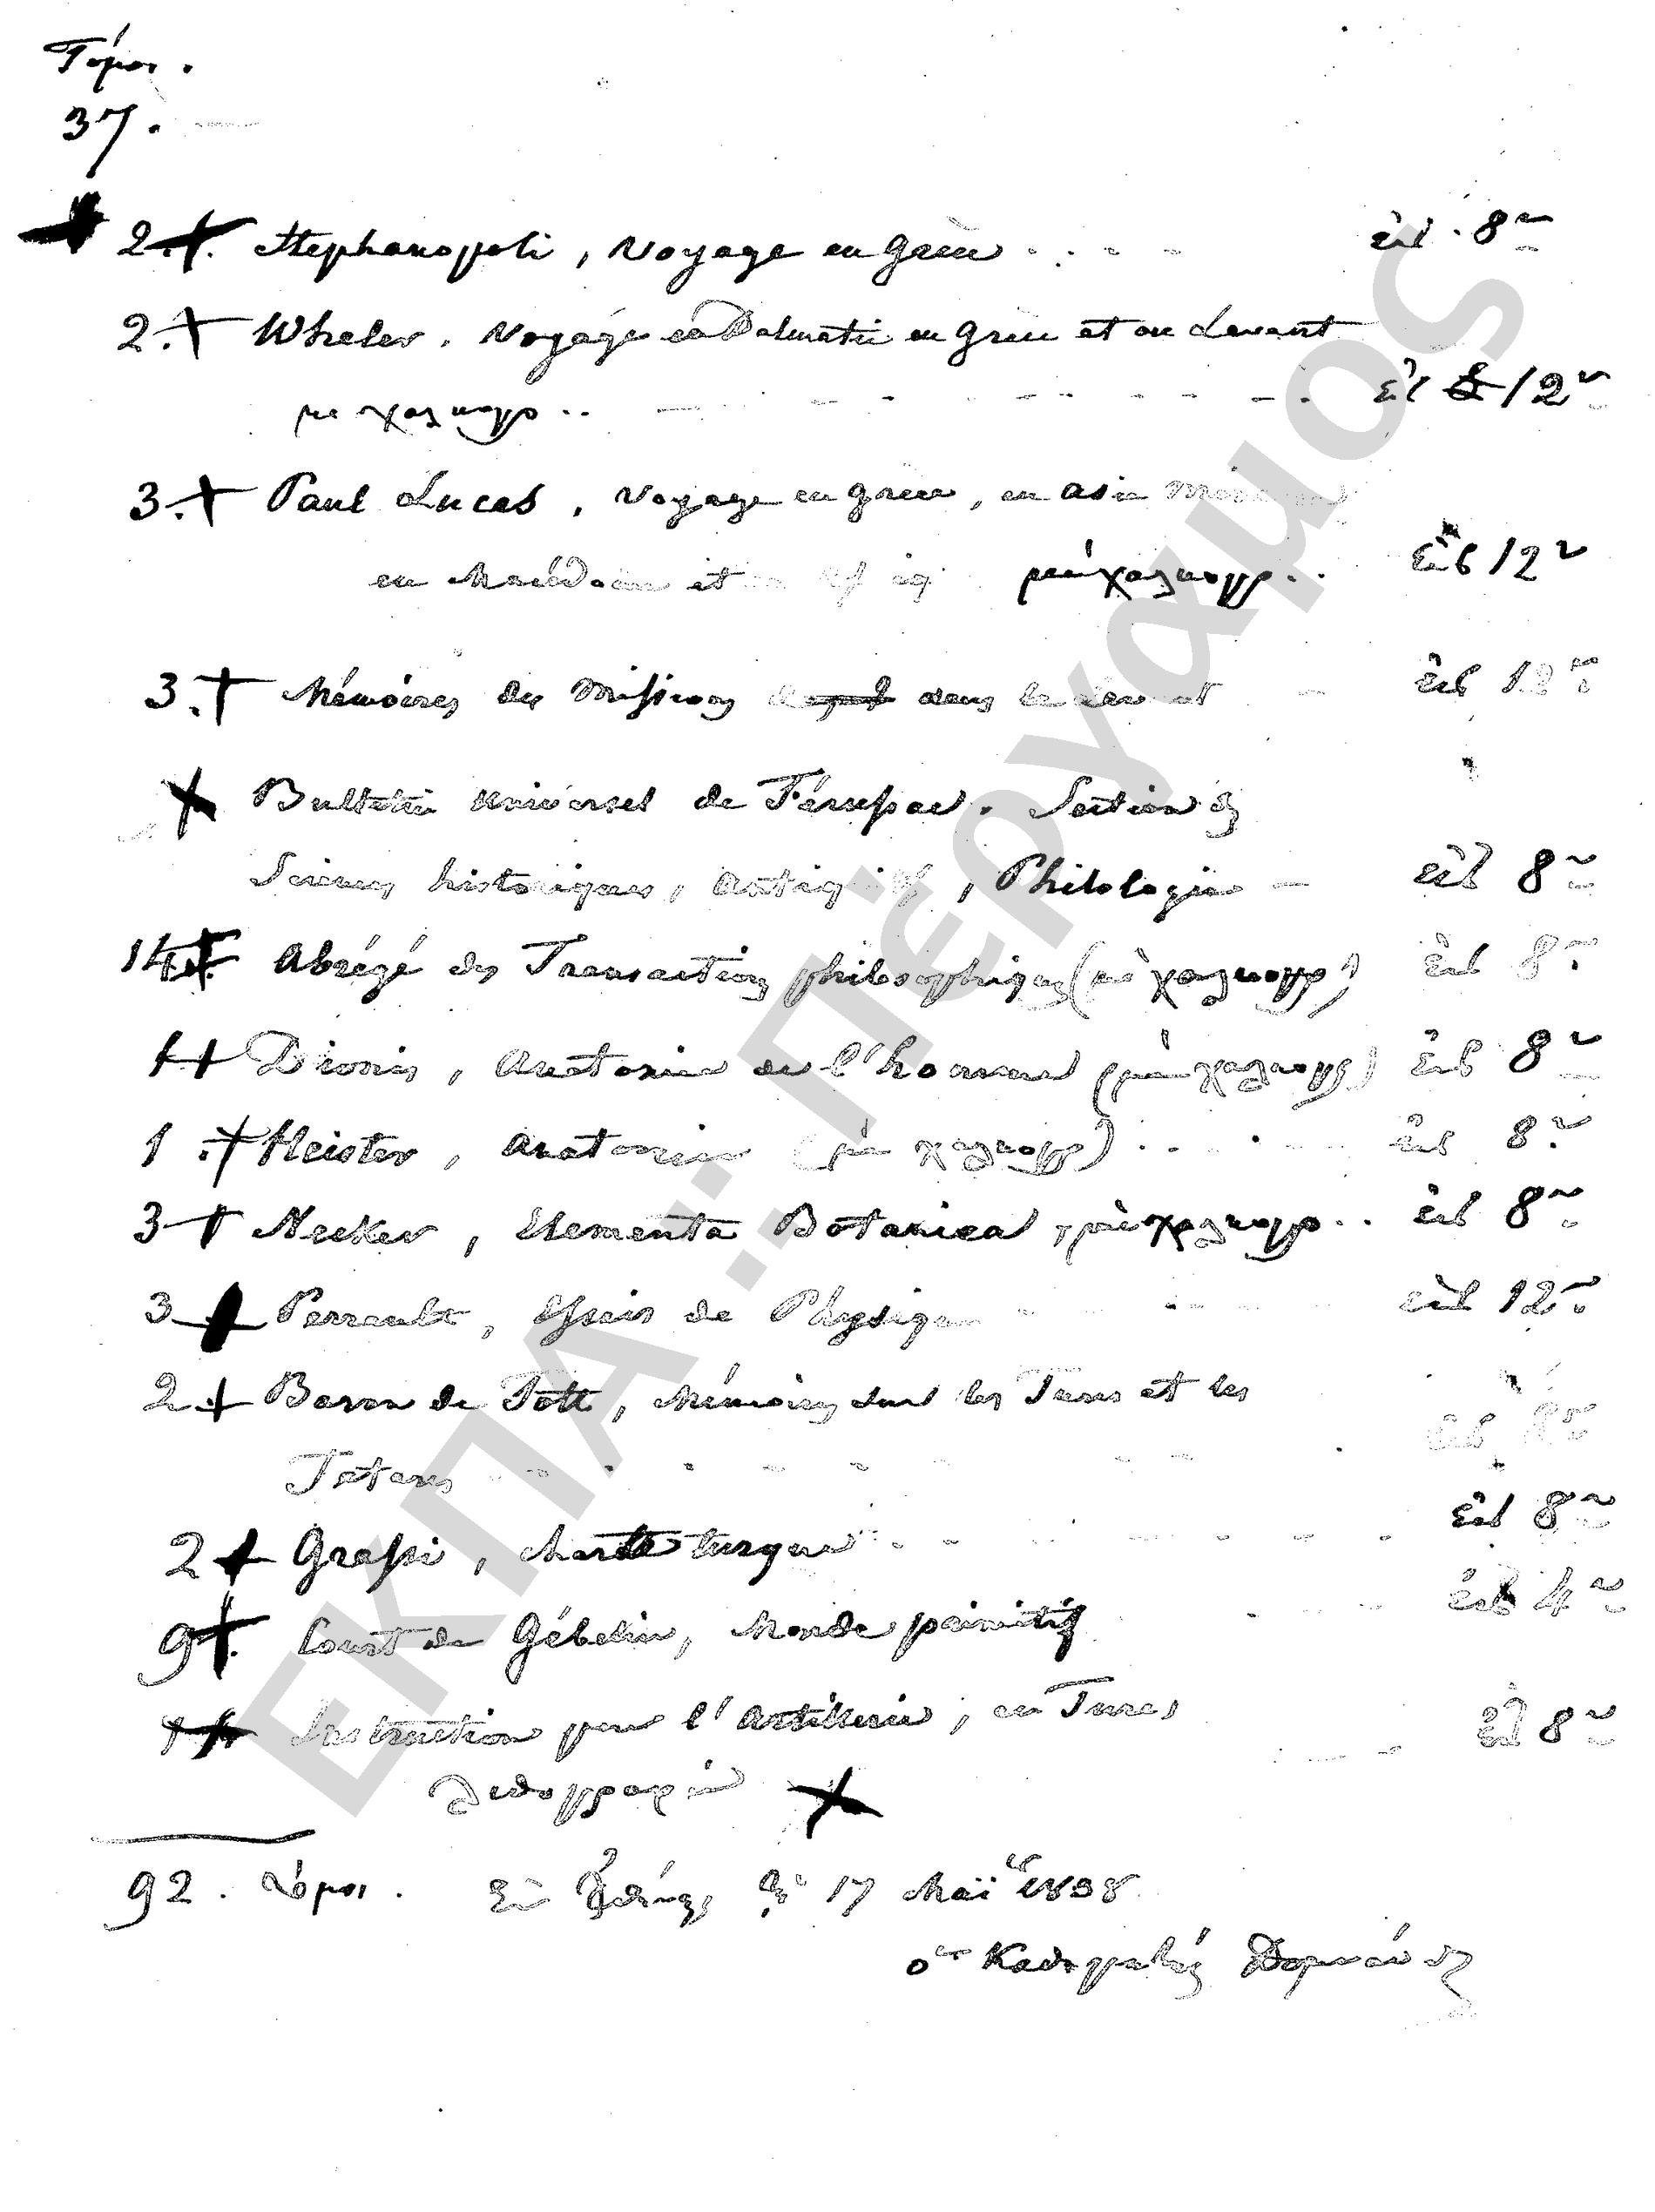 Τόμοι.
37.
2. Stephanopoli, Voyage en Grèce εἰς 8ον
2. Wheler. Voyage en Dalmatie en Grèce et au Levant
με χαλκογρ.. εἰς 12ον
3. Paul Lucas, Voyage en Grèce, en Asie Mineure
en Macédoine et μὲ χαλκογρ.. εἰς 12ον
3. Mémoires des Missions dans le Levant εἰς 12ον
Bulletin universel de Férussac. Section des
Sciences historiques, antiquités, Philologie εἰς 8ον
14. Abrégé des Transactions philosophiques (μὲ χαλκογρ) εἰς 8ον
1 Dionis, Anatomie de l'homme (μὲ χαλκογρ) εἰς 8ον
1. Heister, Anatomie (μὲ χαλκογρ) εἰς 8ον
3 Necker, Elementa Botanica, μὲ χαλκογρ.. εἰς 8ον
3 Perrault, Essais de Physique εἰς 12ον
2 Baron de Tott, Mémoires sur les Turcs et les εἰς 8ον
Tatares
2 Grassi, charte turque εἰς 8ον
9. Court de Gébelin, Monde primitif εἰς 4ον
1 Instruction pour l'Artillerie, en Turc εἰς 8ον
λιθογραφία
92. τόμοι. Ἐν Ἀθήναις 17 Μαΐ 1838
ὁ Καθηγητής
ΕΚΠΑ :: Πέργαμος